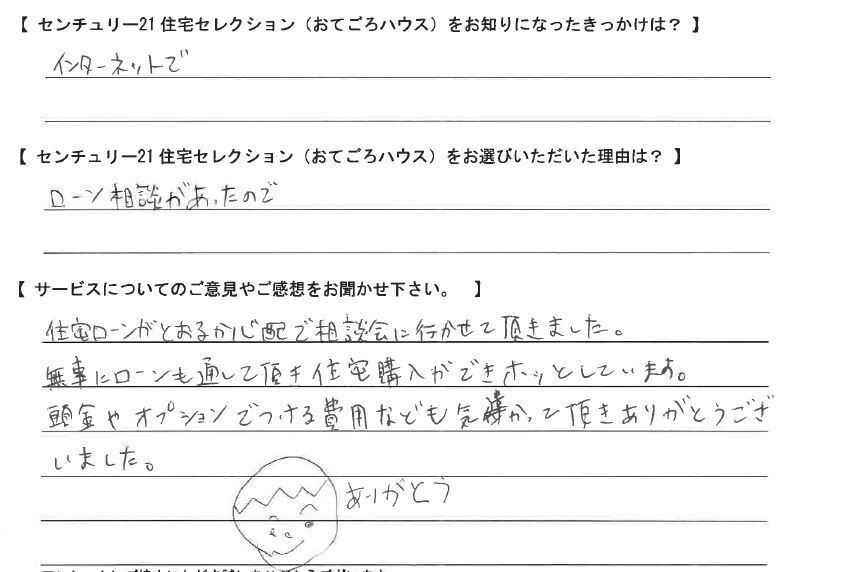 【 センチュリー21 住宅セレクション（おてごろハウス）をお知りになったきっかけは？ 】
インターネットで
【 センチュリー21 住宅セレクション（おてごろハウス）をお選びいただいた理由は？ 】
ローン相談があったので
【 サービスについてのご意見やご感想をお聞かせ下さい。 】
住宅ローンがとおるか心配で相談会に行かせて頂きました。
無事にローンも通して頂き住宅購入ができホッとしています。
頭金やオプションでつける費用なども気 かって頂きありがとうござ
いました。
ありがとう